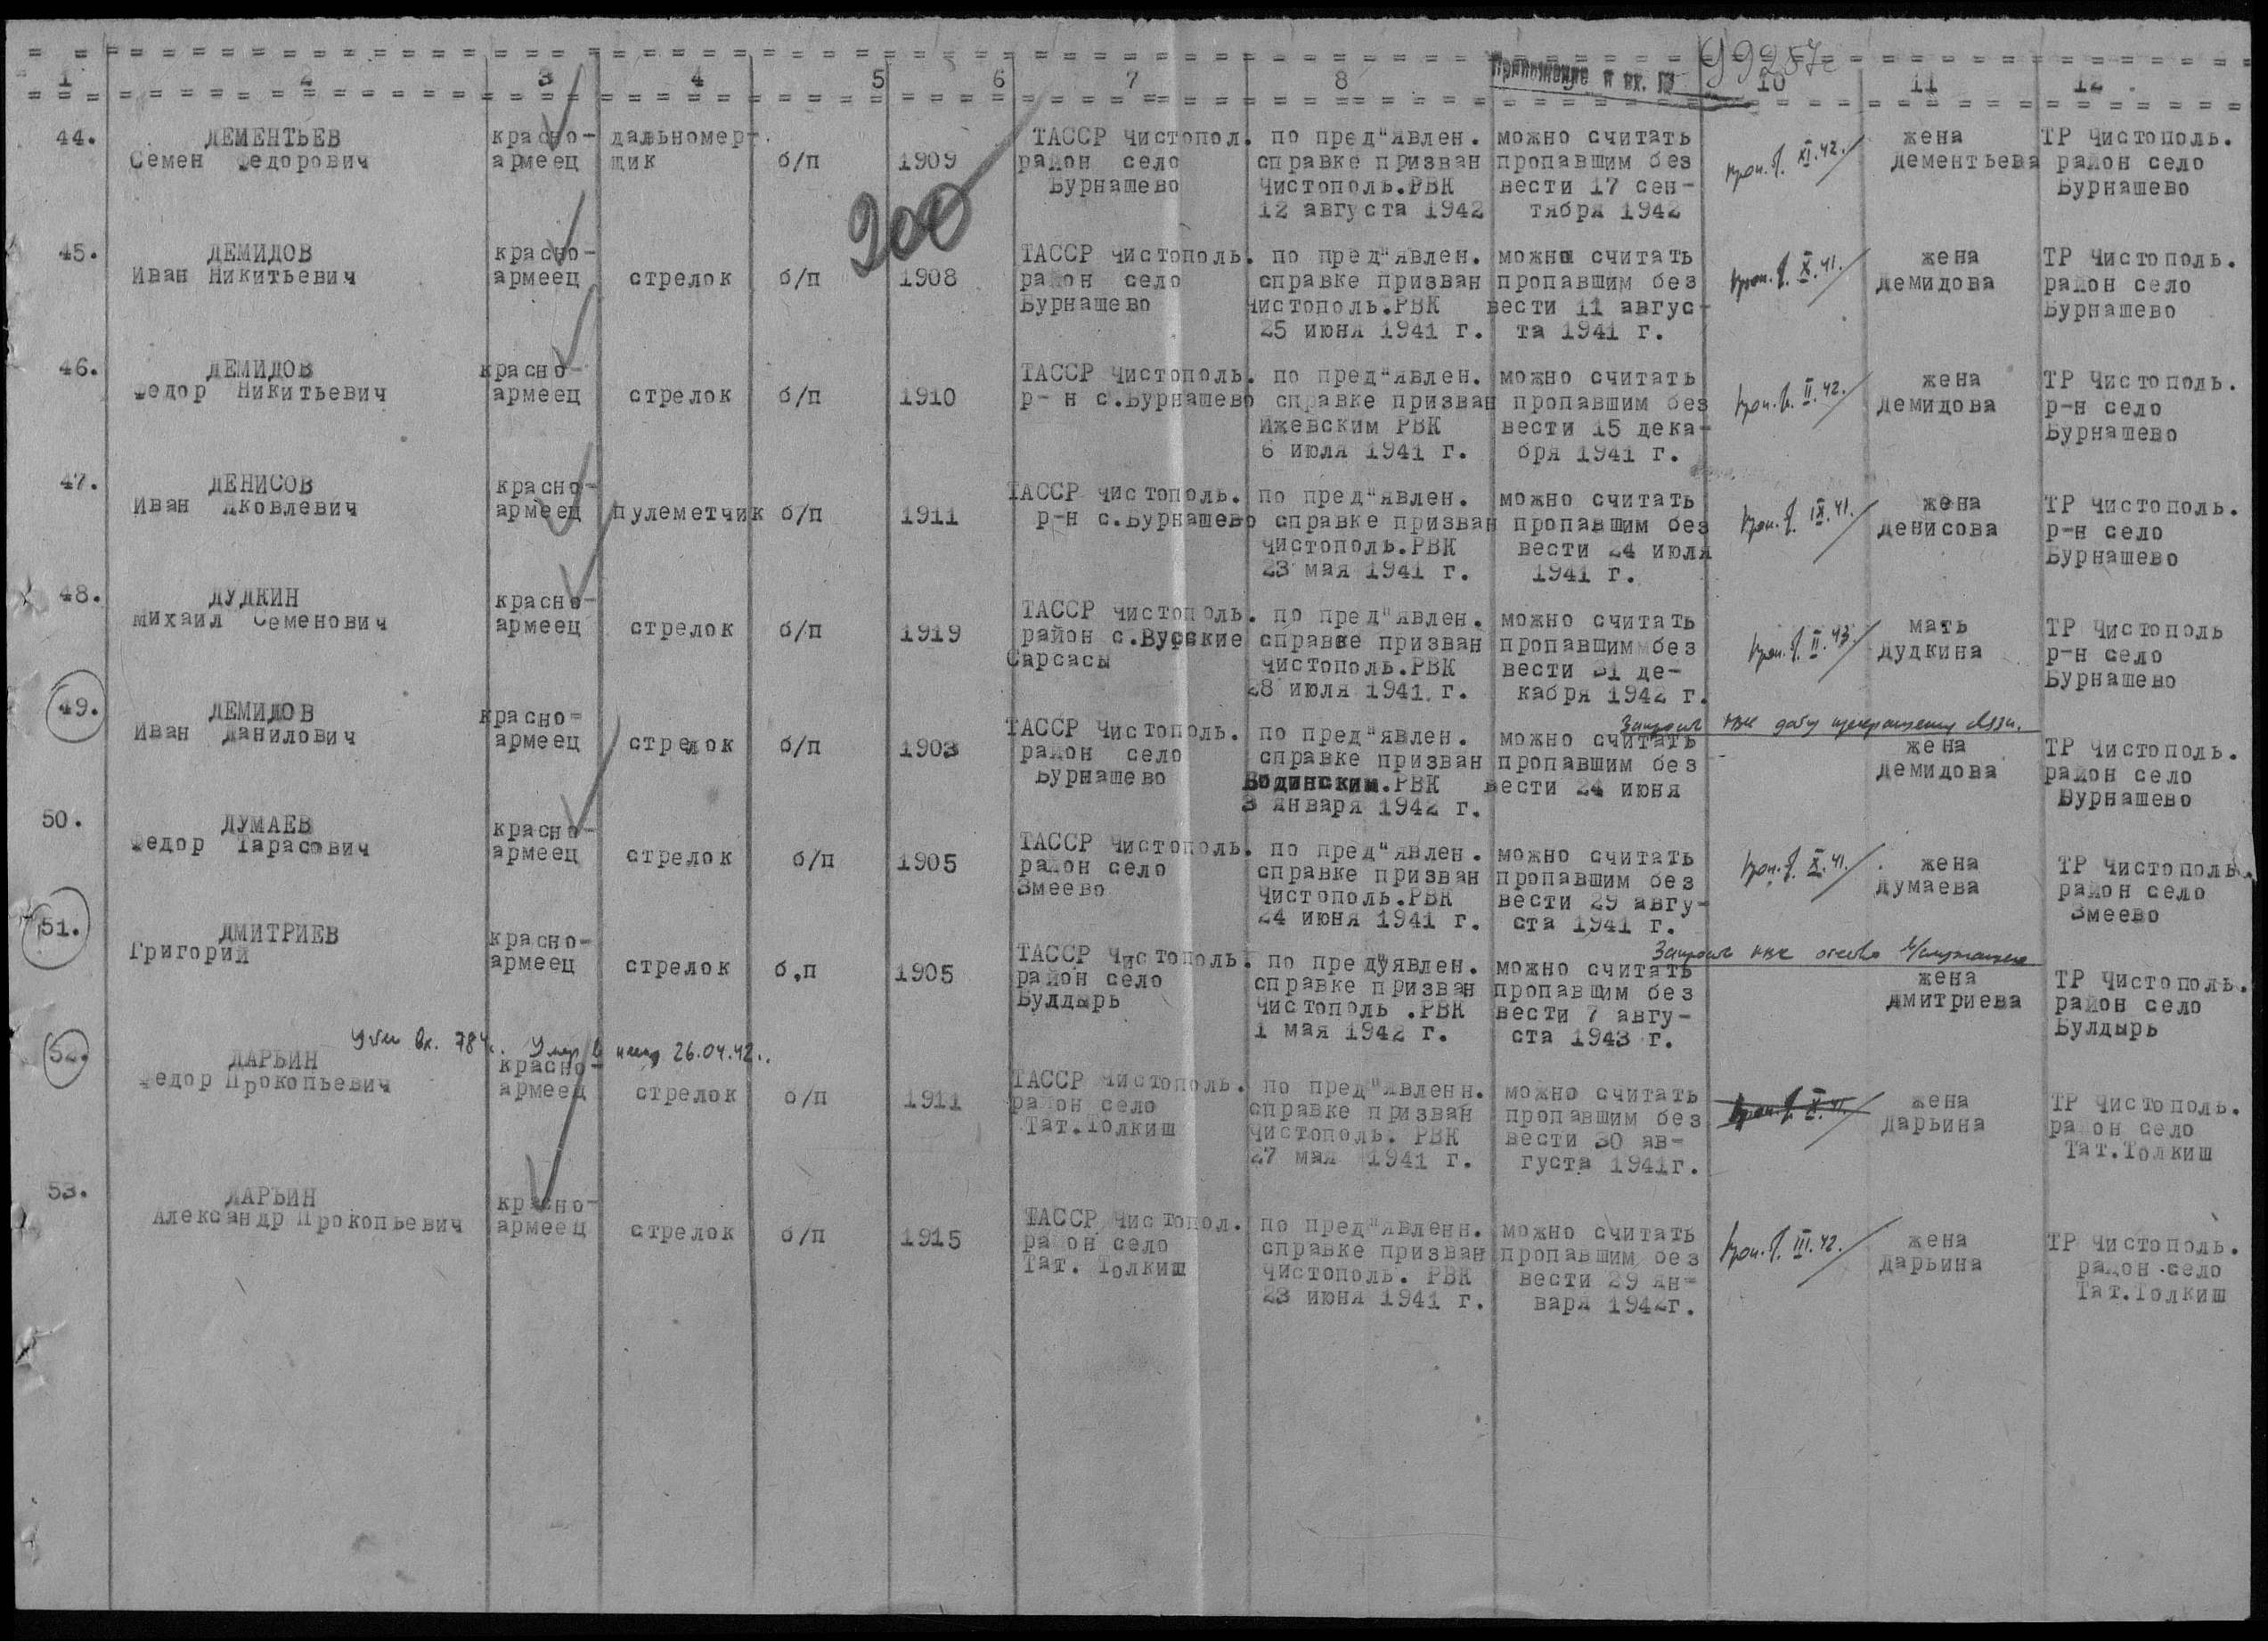 99257с
Приложение к вх. №
1 2 3 4 5 6 7 8 9 10 11 12
200
44. ДЕМЕНТЬЕВ Семен Федорович
красно-
армеец
дальномер-
щик
б/п
1909
ТАССР Чистопол.
район село
Бурнашево
по пред"явлен.
справке призван
Чистополь.РВК
12 августа 1942
можно считать
пропавшим без
вести 17 сен-
тября 1942
проп. XI.42.
жена
Дементьева
ТР Чистополь.
район село
Бурнашево
45. ДЕМИДОВ
Иван Никитьевич
красно-
армеец
стрелок
б/п
1908
ТАССР Чистополь.
район село
Бурнашево
по пред"явлен.
справке призван
Чистополь.РВК
25 июня 1941 г.
можно считать
пропавшим без
вести 11 авгус-
та 1941 г.
проп. X.41.
жена
Демидова
ТР Чистополь.
район село
Бурнашево
46. ДЕМИДОВ
Федор Никитьевич
красно-
армеец
стрелок
б/п
1910
ТАССР Чистополь.
р-н с.Бурнашево
по пред"явлен.
справке призван
Ижевским РВК
6 июля 1941 г.
можно считать
пропавшим без
вести 15 дека-
бря 1941 г.
проп. II.42.
жена
Демидова
ТР Чистополь.
р-н село
Бурнашево
47. ДЕНИСОВ
Иван Яковлевич
красно-
армеец
пулеметчик
б/п
1911
ТАССР Чистополь.
р-н с.Бурнашево
по пред"явлен.
справке призван
Чистополь.РВК
23 мая 1941 г.
можно считать
пропавшим без
вести 24 июля
1941 г.
проп. IX.41.
жена
Денисова
ТР Чистополь.
р-н село
Бурнашево
48. ДУДКИН
Михаил Семенович
красно-
армеец
стрелок
б/п
1919
ТАССР Чистополь.
район с.Вусские
Сарсасы
по пред"явлен.
справке призван
Чистополь.РВК
28 июля 1941 г.
можно считать
пропавшим без
вести 31 де-
кабря 1942 г.
проп. II.43.
мать
Дудкина
ТР Чистополь
р-н село
Бурнашево
49. ДЕМИДОВ
Иван Данилович
красно-
армеец
стрелок
б/п
1903
ТАССР Чистополь.
район село
Бурнашево
по пред"явлен.
справке призван
Водинским.РВК
3 января 1942 г.
можно считать
пропавшим без
вести 24 июня
Запрос РВК дату прекращения связи.
жена
Демидова
ТР Чистополь.
район село
Бурнашево
50. ДУМАЕВ
Федор Тарасович
красно-
армеец
стрелок
б/п
1905
ТАССР Чистополь.
район село
Змеево
по пред"явлен.
справке призван
Чистополь.РВК
24 июня 1941 г.
можно считать
пропавшим без
вести 29 авгу-
ста 1941 г.
проп. X.41.
жена
Думаева
ТР Чистополь.
район село
Змеево
51. ДМИТРИЕВ
Григорий
красно-
армеец
стрелок
б.п
1905
ТАССР Чистополь.
район село
Булдырь
по предУявлен.
справке призван
Чистополь .РВК
1 мая 1942 г.
можно считать
пропавшим без
вести 7 авгу-
ста 1943 г.
Запрос РВК
жена
Дмитриева
ТР Чистополь.
район село
Булдырь
вх. 784с. Умер в плену 26.04.42..
52. ДАРЬИН
Федор Прокопьевич
красно-
армеец
стрелок
б/п
1911
ТАССР Чистополь.
район село
Тат.Толкиш
по пред"явленн.
справке призван
Чистополь. РВК
27 мая 1941 г.
можно считать
пропавшим без
вести 30 ав-
густа 1941г.
жена
Дарьина
ТР Чистополь.
район село
Тат.Толкиш
53. ДАРЬИН
Александр Прокопьевич
красно-
армеец
стрелок
б/п
1915
ТАССР Чистопол.
район село
Тат. Толкиш
по пред"явленн.
справке призван
Чистополь. РВК
23 июня 1941 г.
можно считать
пропавшим без
вести 29 ян-
варя 1942г.
проп. III.42.
жена
Дарьина
ТР Чистополь.
район село
Тат.Толкиш